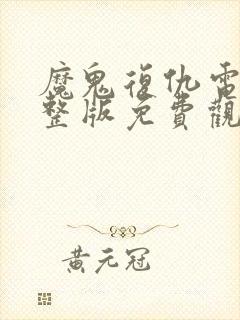 魔鬼復仇電
整版免費觀
黃元冠